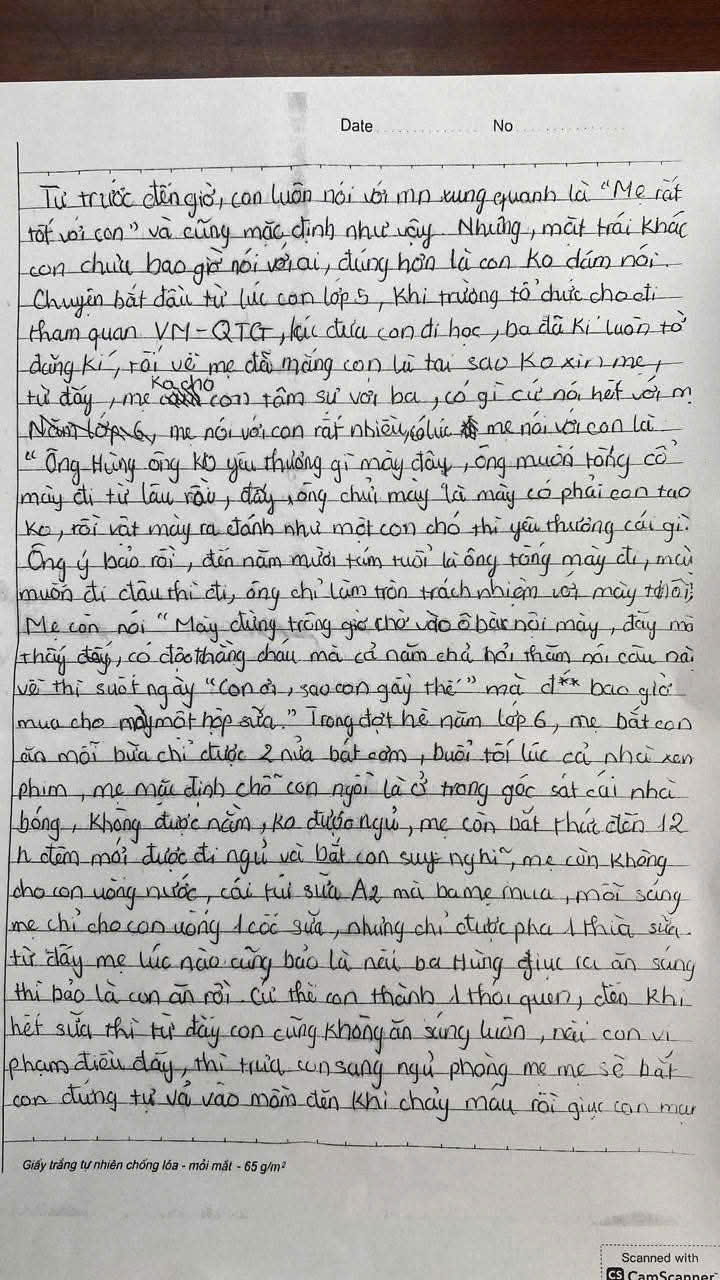 Date No
Từ trước đến giờ, con luôn nói với mn xung quanh là "Mẹ rất
tốt với con" và cũng mặc định như vậy. Nhưng, mặt trái khác
con chưa bao giờ nói với ai, đúng hơn là con ko dám nói.
Chuyện bắt đầu từ lúc con lớp 5, khi trường tổ chức cho đi
tham quan VM-QTG, lúc đưa con đi học, ba đã kí luôn tờ
đăng kí, rồi về mẹ đã mắng con là tại sao ko xin mẹ,
từ đấy, mẹ ko cho con tâm sự với ba, có gì cứ nói hết với m
Năm lớp 6, mẹ nói với con rất nhiều, có lúc mẹ nói với con là
"Ông Hùng ông ko yêu thương gì mày đâu, ông muốn tống cổ
mày đi từ lâu rồi, đấy, ông chửi mày là mày có phải con tao
ko, rồi vật mày ra đánh như một con chó thì yêu thương cái gì?
Ông ý bảo rồi, đến năm mười tám tuổi là ông tống mày đi, mày
muốn đi đâu thì đi, ông chỉ làm tròn trách nhiệm với mày thôi",
Mẹ còn nói "Mày đừng trông giờ chờ vào ô bà nội mày, đây mà
thấy đấy, có độc thằng cháu mà cả năm chả hỏi thăm nói câu nào
về thì suốt ngày "Con ơi, sao con gầy thế" mà đ** bao giờ
mua cho mày một hộp sữa." Trong đợt hè năm lớp 6, mẹ bắt con
ăn mỗi bữa chỉ được 2 nửa bát cơm, buổi tối lúc cả nhà xem
phim, mẹ mặc định chỗ con ngồi là ở trong góc sát cái nhà
bóng, không được nằm, ko được ngủ, mẹ còn bắt thức đến 12
h đêm mới được đi ngủ và bắt con suy nghĩ, mẹ còn không
cho con uống nước, cái túi sữa A2 mà ba mẹ mua, mỗi sáng
mẹ chỉ cho con uống 1 cốc sữa, nhưng chỉ được pha 1 thìa sữa.
từ đấy mẹ lúc nào cũng bảo là nếu ba Hùng giục ra ăn sáng
thì bảo là con ăn rồi. Cứ thế con thành 1 thói quen, đến khi
hết sữa thì từ đấy con cũng không ăn sáng luôn, nếu con vi
phạm điều đấy, thì trưa con sang ngủ phòng mẹ mẹ sẽ bắt
con đứng tự vả vào mồm đến khi chảy máu rồi giục con mau
Giấy trắng tự nhiên chống lóa - mỏi mắt - 65 g/m²
Scanned with
CS CamScanner